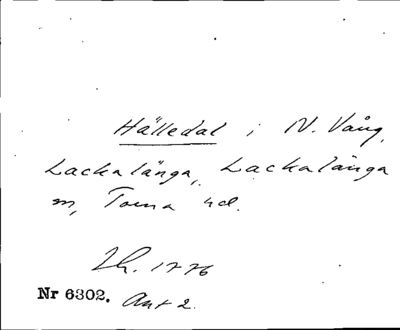 Hälledal i N. Vång,
Lackalänga, Lackalänga
m, Torna hd.
Lh. 1776
Nr 6302. Akt 2.